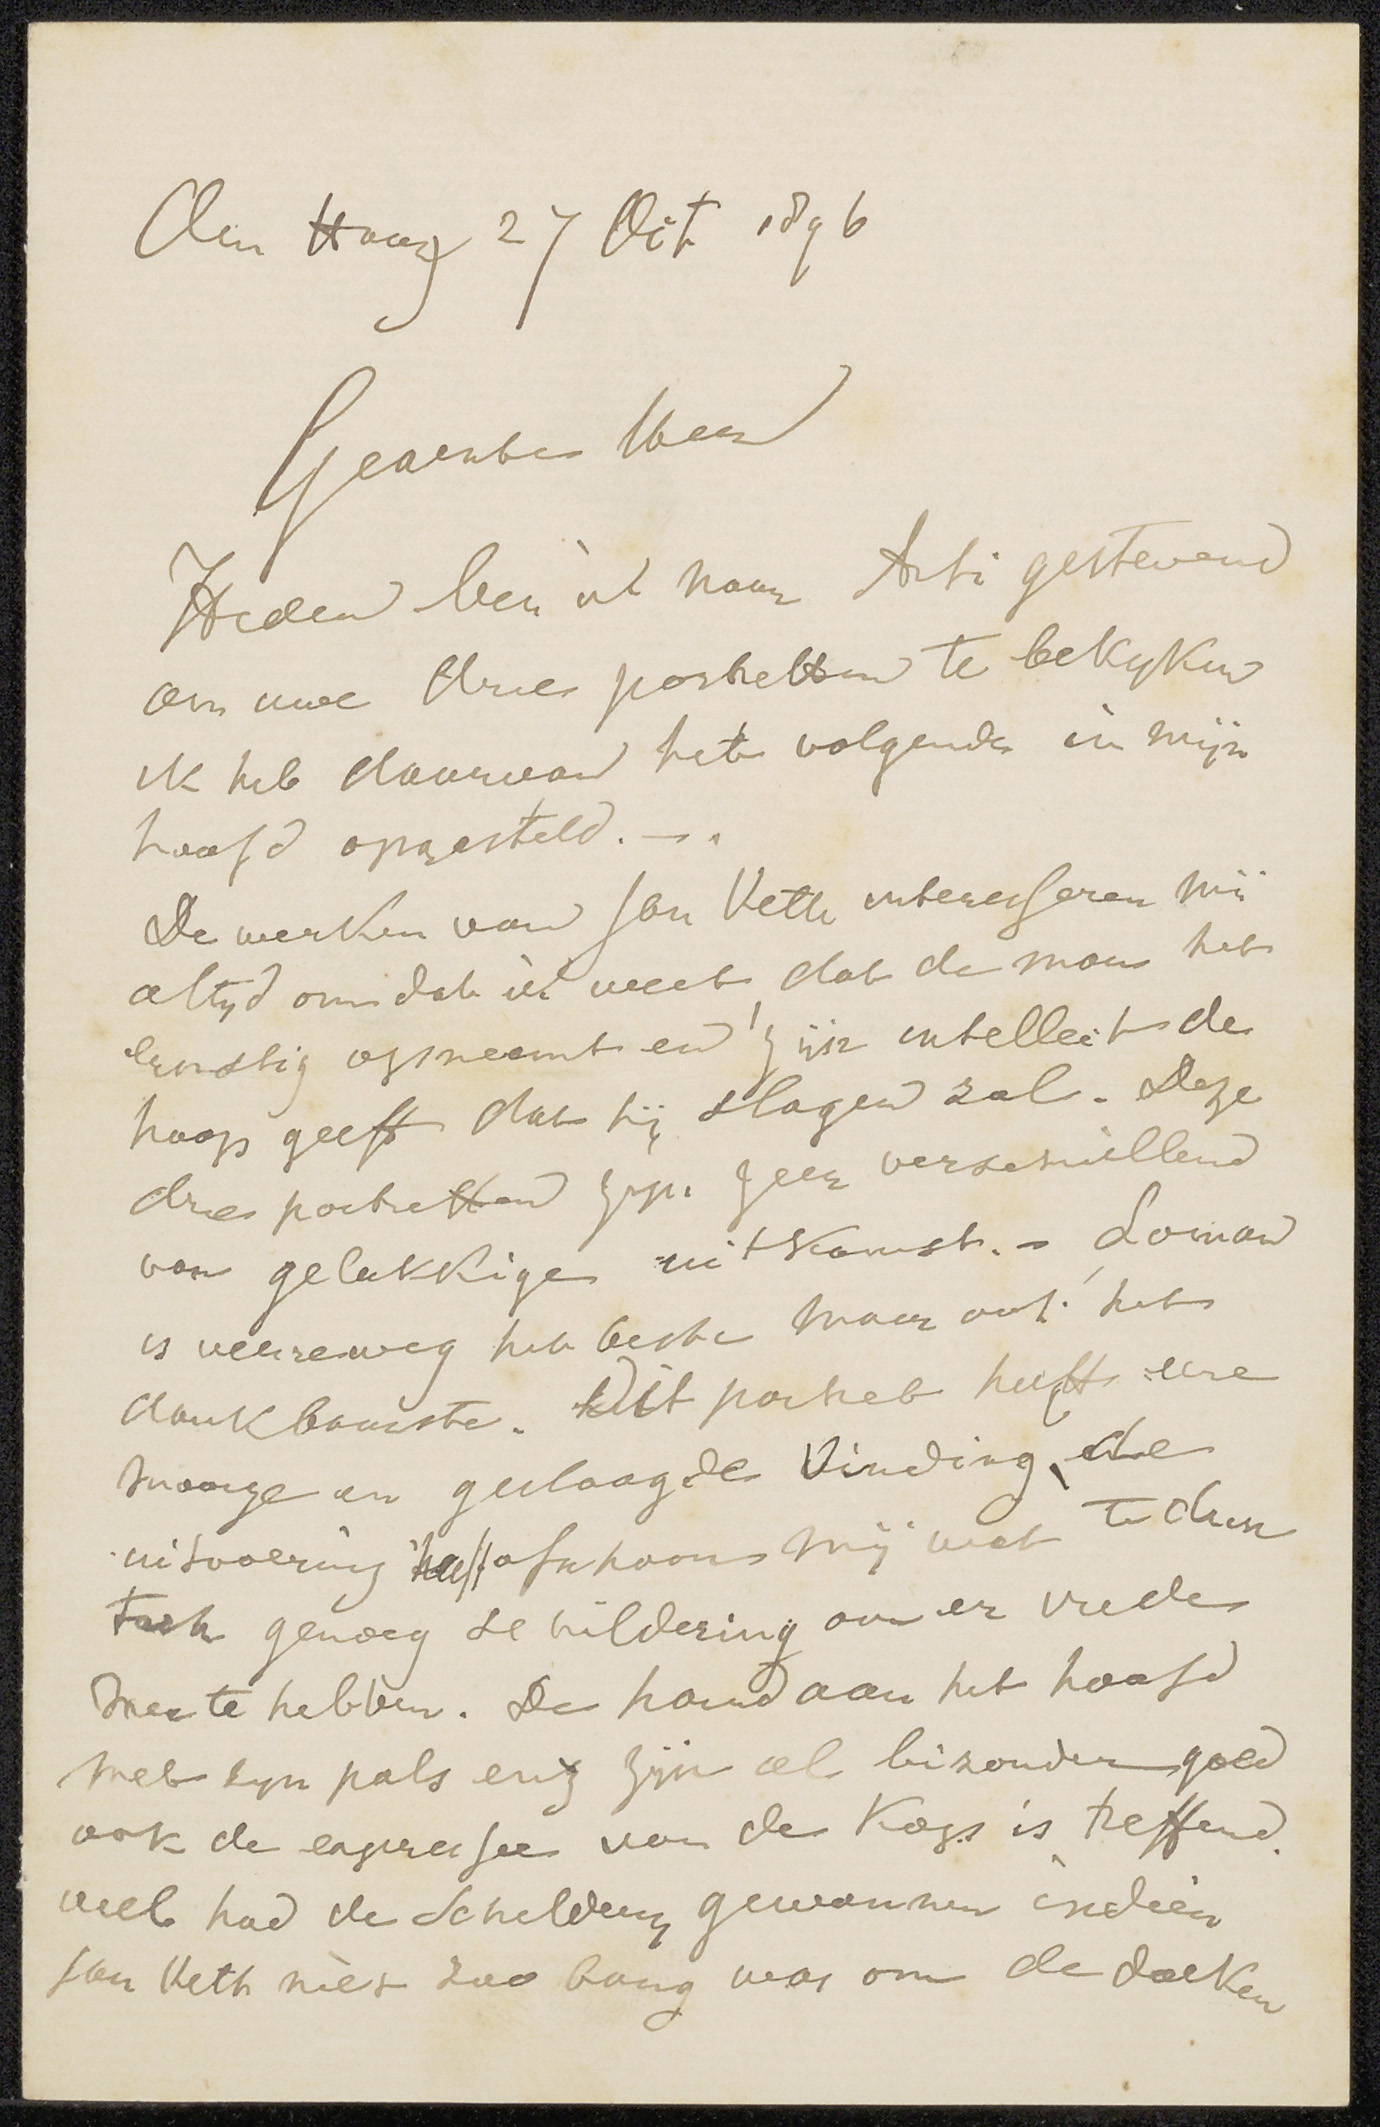 Den Haag 27 Oct 1896
Geachte Heer
Heden ben ik naar Arti gestevend
om uwe drie portretten te bekyken
ik heb daarvan het volgende in mijn
hoofd opgesteld. —.
De werken van Jan Veth interesseren mij
altyd omdat ik weet dat de man het
ernstig opneemt en zijn intellect de
hoop geeft dat hij slagen zal. Deze
drie portretten zijn zeer verschillend
van gelukkige uitkomst. – Loman
is veereweg het beste maar ook het
dankbaarste. Dit portret heeft eene
mooije en geslaagde Vinding, de
uitvoering ofschoon mij wat te dun
toch genoeg schildering om er vrede
mee te hebben. De hand aan het hoofd
met zyn pols enz zijn al bizonder goed
ook de expressie van de Kop is treffend.
veel had de Schildery gewonnen indien
Jan Veth niet zoo bang was om de doeken